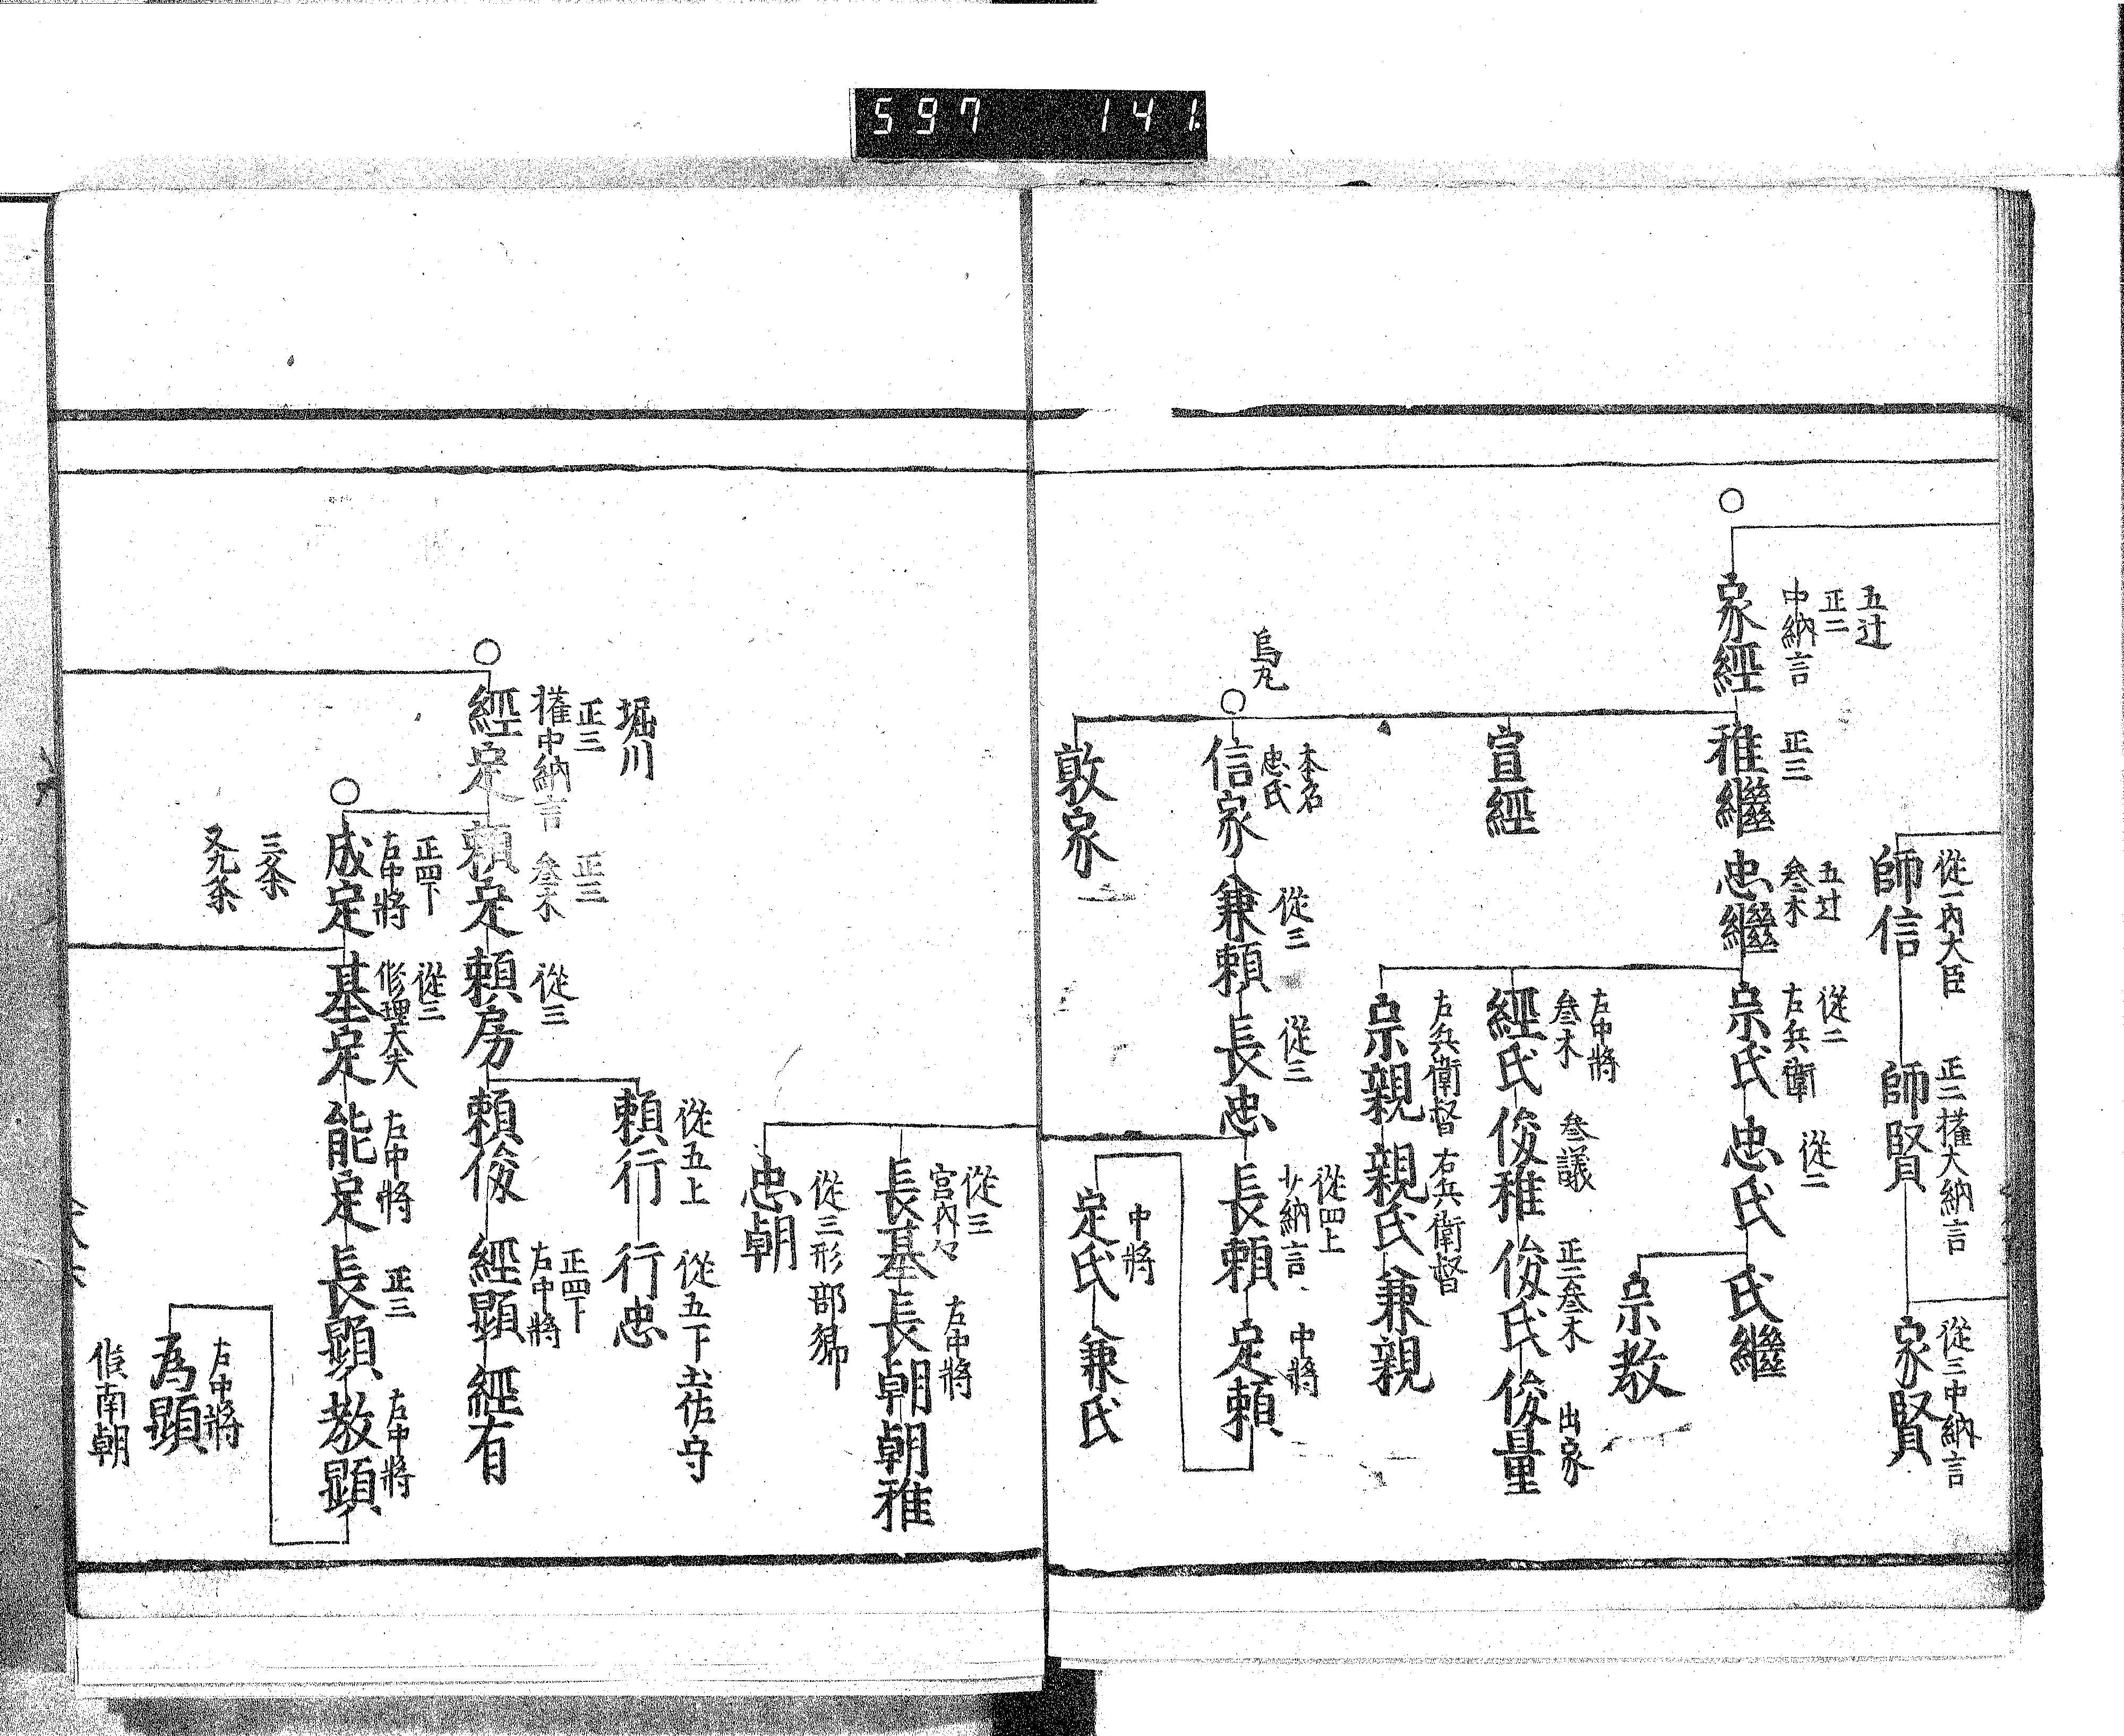 597 141
従一内大臣
師信
正二権大納言
師賢
従三中納言
家賢
五辻
正二
中納言
家經
正三
雅繼
五辻
叅木
忠繼
従二
右兵衛
宗氏
従二
忠氏
氏繼
宗教
宣經
左中将
叅木
經氏
叅議
俊雅
正二叅木
俊氏
出家
俊量
右兵衛督
宗親
右兵衛督
親氏
兼親
烏丸
本名
忠氏
信家
従三
兼頼
従三
長忠
従四上
少納言
長頼
中将
定頼
敦家
中将
定氏
兼氏
従三
宮内々
長基
左中将
長朝
朝雅
従三形部卿
忠朝
堀川
正三
權中納言
經定
正三
叅木
頼定
従三
頼房
従五上
頼行
従五下土佐守
行忠
頼俊
正四下
左中将
經顕
經有
正四下
右中将
成定
従三
修理大夫
基定
左中将
能定
正三
長顕
左中将
教顕
三条
又九条
右中将
為顕
候南朝